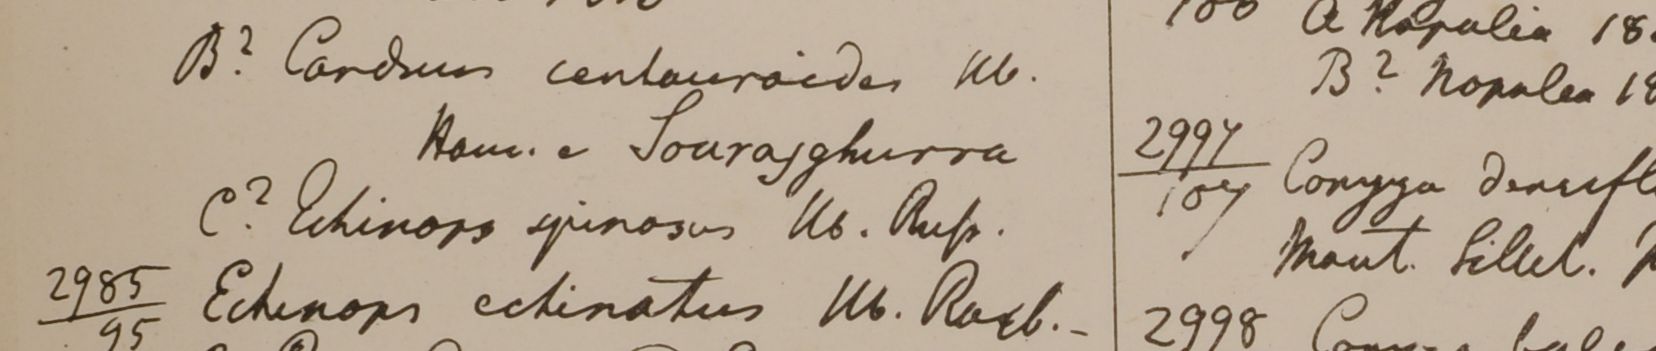 B? Carduus centauroides Hb.
Ham. e Sourajghurra
C? Echinops spinosus Hb. Russ.
2985
95
Echinops echinatus Hb. Roxb.-
A Nopalia 18
B? Nopalea 18
2997
107
Conyza densifl
Mont. Sillet.
2998